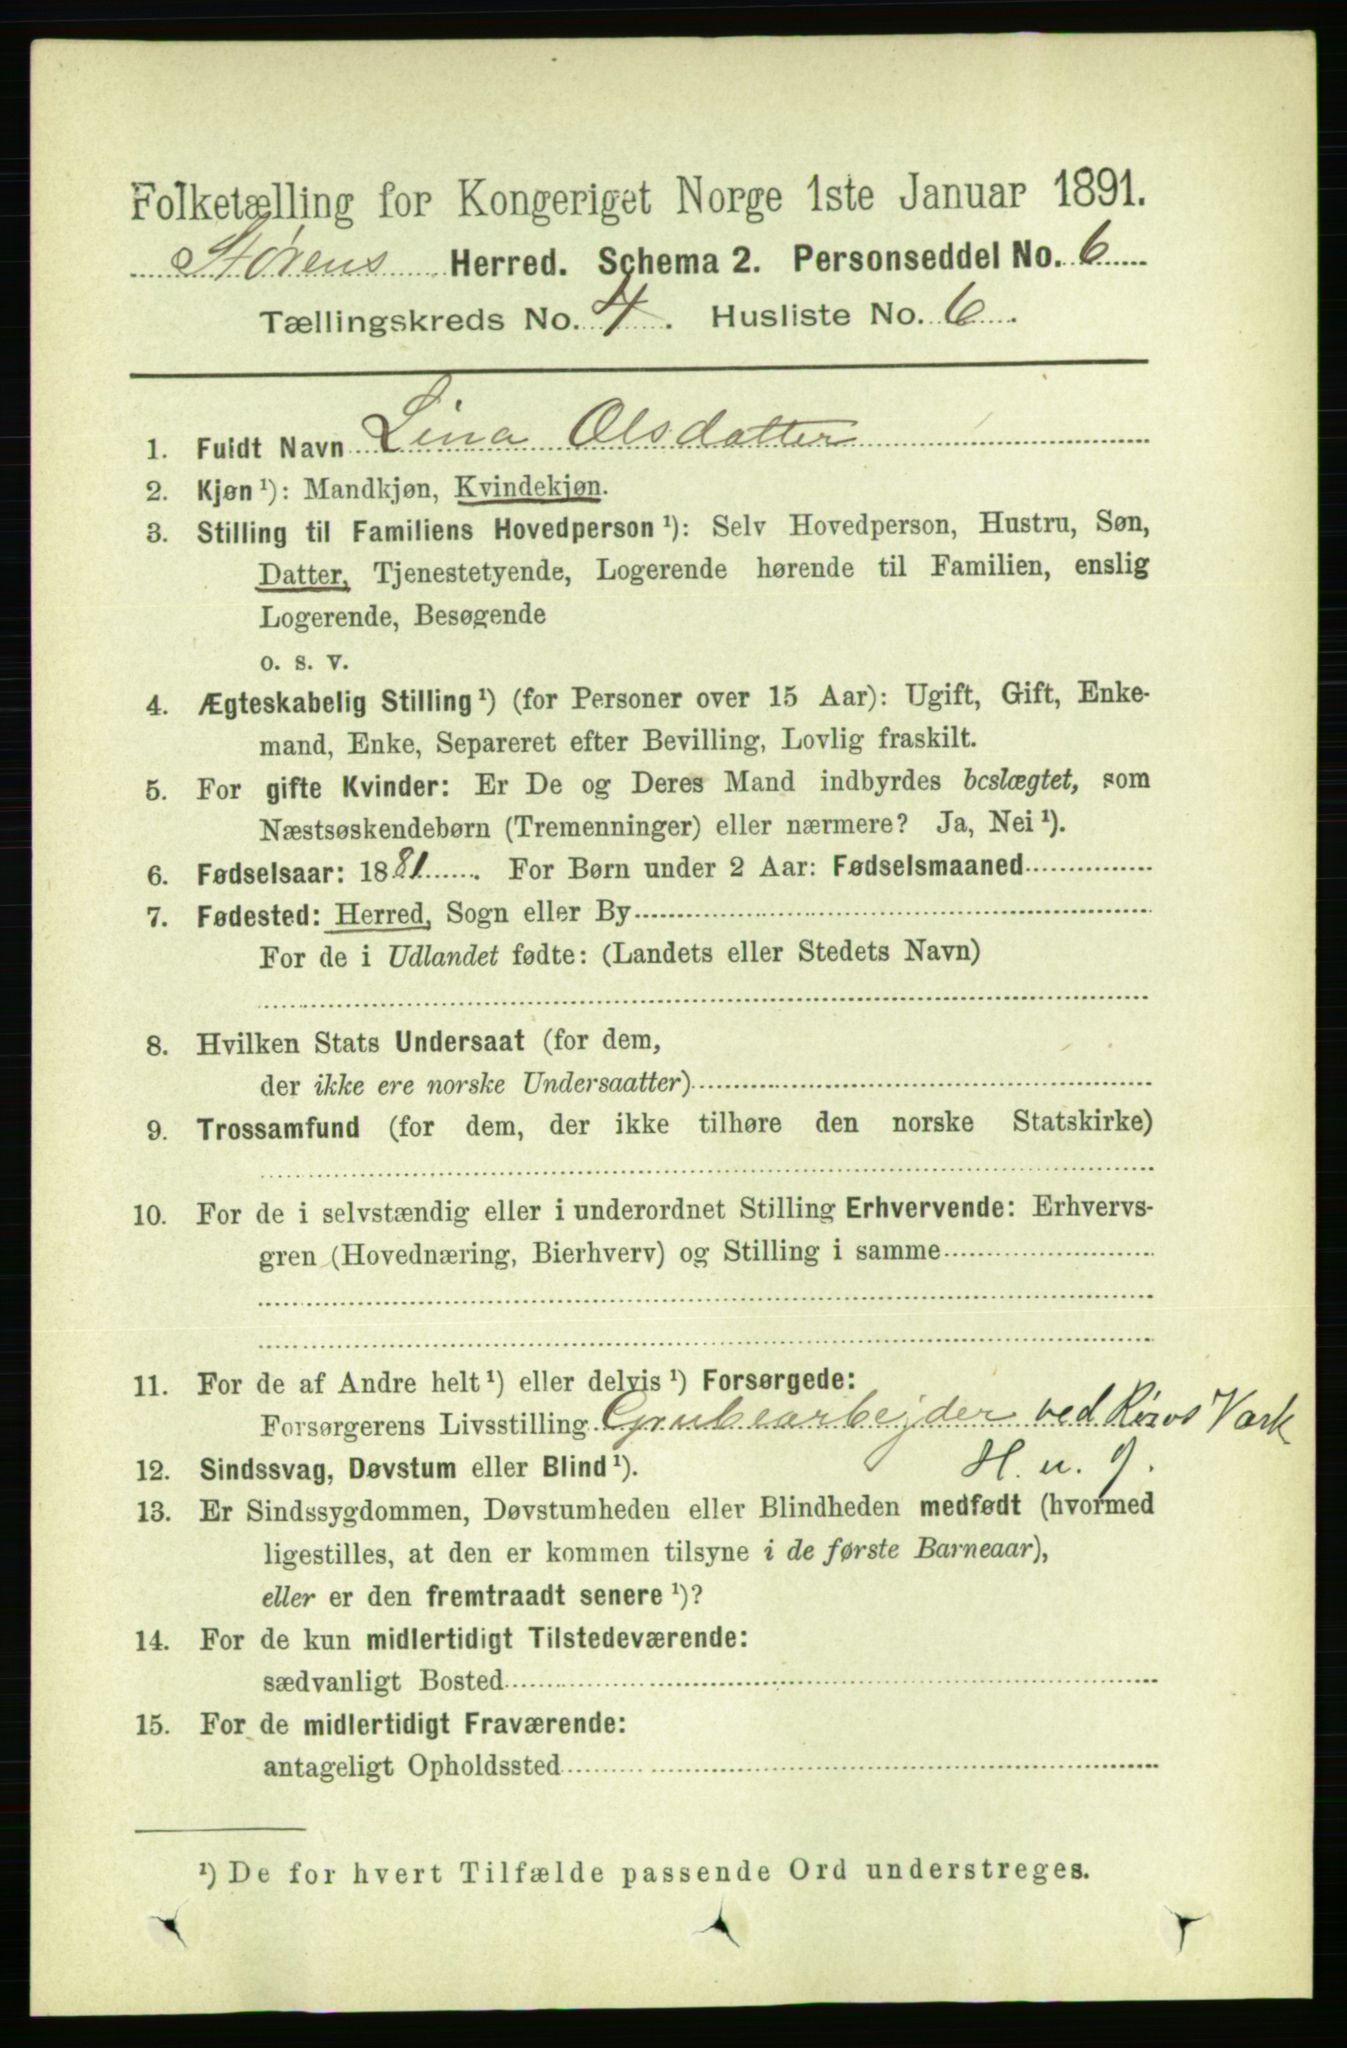 Folketælling for Kongeriget Norge 1ste Januar 1891.
Størens Herred. Schema 2. Personseddel No. 6
Tællingskreds No. 4. Husliste No. 6.
1. Fuldt Navn Lina Olsdatter
2. Kjøn ¹): Mandkjøn, Kvindekjøn.
3. Stilling til Familiens Hovedperson ¹): Selv Hovedperson, Hustru, Søn,
Datter, Tjenestetyende, Logerende hørende til Familien, enslig
Logerende, Besøgende
o. s. v.
4. Ægteskabelig Stilling ¹) (for Personer over 15 Aar): Ugift, Gift, Enke-
mand, Enke, Separeret efter Bevilling, Lovlig fraskilt.
5. For gifte Kvinder: Er De og Deres Mand indbyrdes beslægtet, som
Næstsøskendebørn (Tremenninger) eller nærmere? Ja, Nei ¹).
6. Fødselsaar: 1881. For Børn under 2 Aar: Fødselsmaaned
7. Fødested: Herred, Sogn eller By
For de i Udlandet fødte: (Landets eller Stedets Navn)
8. Hvilken Stats Undersaat (for dem,
der ikke ere norske Undersaatter)
9. Trossamfund (for dem, der ikke tilhøre den norske Statskirke)
10. For de i selvstændig eller i underordnet Stilling Erhvervende: Erhvervs-
gren (Hovednæring, Bierhverv) og Stilling i samme
11. For de af Andre helt ¹) eller delvis ¹) Forsørgede:
Forsørgerens Livsstilling Grubearbejder ved Røros Værk
12. Sindssvag, Døvstum eller Blind ¹). H. u. g.
13. Er Sindssygdommen, Døvstumheden eller Blindheden medfødt (hvormed
ligestilles, at den er kommen tilsyne i de første Barneaar),
eller er den fremtraadt senere ¹)?
14. For de kun midlertidigt Tilstedeværende:
sædvanligt Bosted
15. For de midlertidigt Fraværende:
antageligt Opholdssted
¹) De for hvert Tilfælde passende Ord understreges.